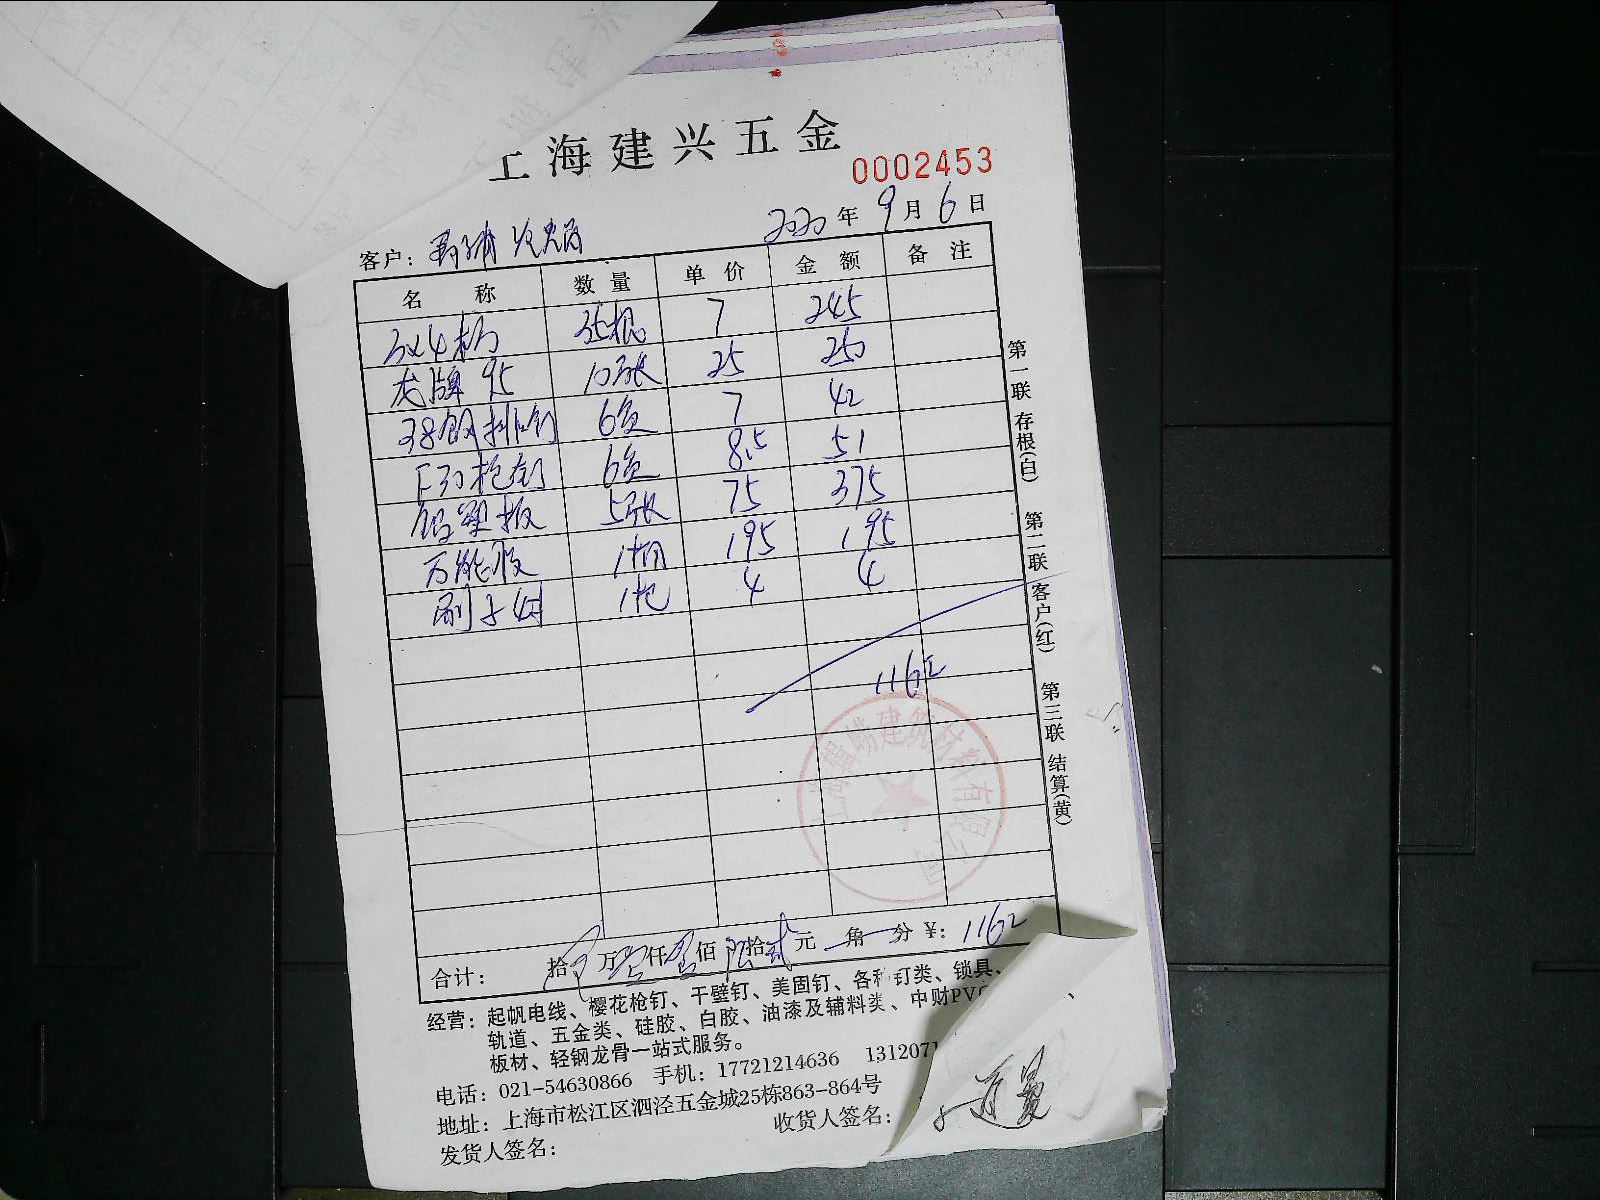 上海建兴五金
0002453
2020年9月6日
客户:
名 称 数 量 单 价 金 额 备 注
3x4杨 35根 7 245
龙牌 95 10张 25 250
38钢排钉 6盒 7 42
F30枪钉 6盒 8.5 51
铝塑板 5张 75 375
万能胶 1桶 195 195
刷子 1把 4 4
1162
上海瀚嶗建筑材料有限公司
合计: 拾 万壹仟壹佰陆拾贰元 角 分 ¥: 1162
第一联 存根(白) 第二联 客户(红) 第三联 结算(黄)
经营: 起帆电线、樱花枪钉、干壁钉、美固钉、各种钉类、锁具、
轨道、五金类、硅胶、白胶、油漆及辅料类、中财PVC
板材、轻钢龙骨一站式服务。
电话: 021-54630866 手机: 17721214636 1312071
地址: 上海市松江区泗泾五金城25栋863-864号
发货人签名: 收货人签名: